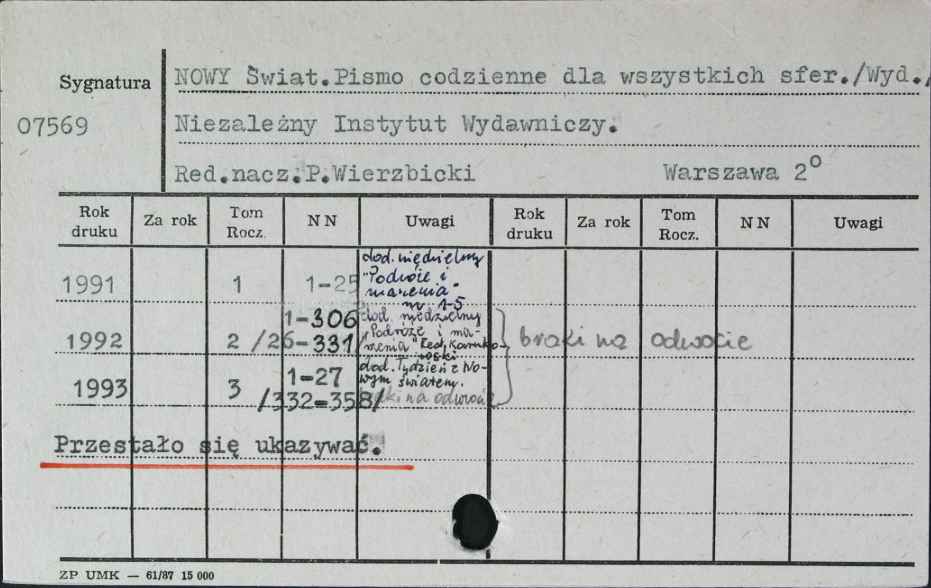 Sygnatura NOWY Świat.Pismo codzienne dla wszystkich sfer./Wyd.,
07569 Niezależny Instytut Wydawniczy.
Red.nacz.P.Wierzbicki Warszawa 2°
Rok druku Za rok Tom Rocz. NN Uwagi Rok druku Za rok Tom Rocz. NN Uwagi
1991 1 1-25 dod. niedzielny
"Podróże i
marzenia.
nr 1-5
1992 2 1-306 /26-331/ dod niedzielny
"Podróże i ma-
rzenia" Red.
braki na odwocie
1993 3 1-27 /332=358/ dod. Tydzień z No-
wym światem.
braki na odwrocie
Przestało się ukazywać.
ZP UMK — 61/87 15 000